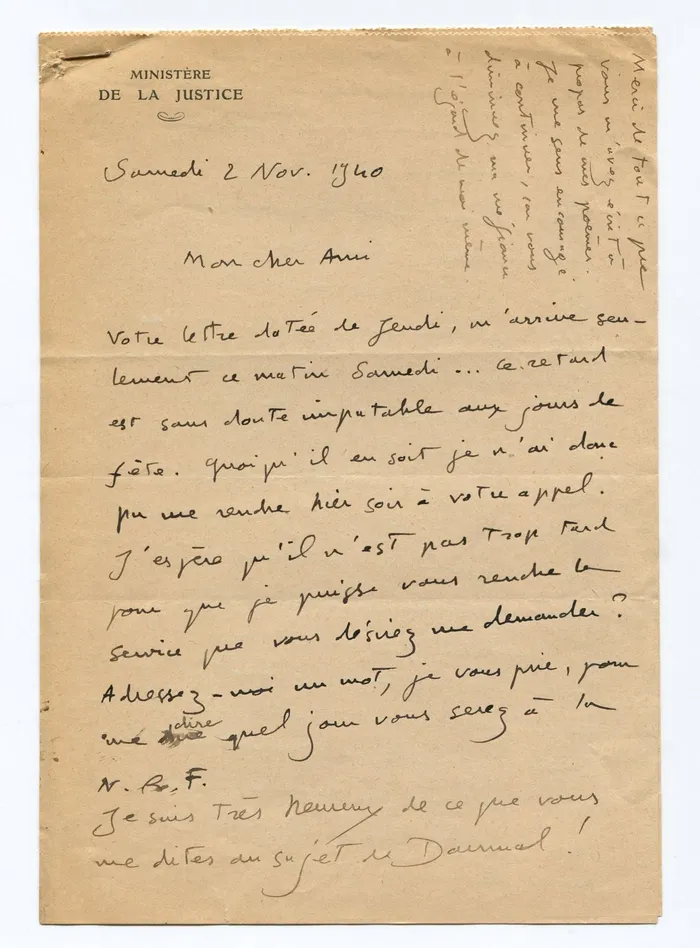 MINISTÈRE
DE LA JUSTICE
Samedi 2 Nov. 1940
Mon cher Ami
Votre lettre datée de Jeudi, m'arrive seu-
lement ce matin Samedi... ce retard
est sans doute imputable aux jours de
fête. Quoiqu'il en soit je n'ai donc
pu me rendre hier soir à votre appel.
J'espère qu'il n'est pas trop tard
pour que je puisse vous rendre le
service que vous désiriez me demander ?
Adressez-moi un mot, je vous prie, pour
me dire quel jour vous serez à la
N. R. F.
Je suis très heureux de ce que vous
me dites au sujet de Daumal !
Merci de tout ce que
vous m'avez écrit à
propos de mes poèmes.
Je me sens encouragé
à continuer, car vous
diminuez ma méfiance
à l'égard de moi-même.